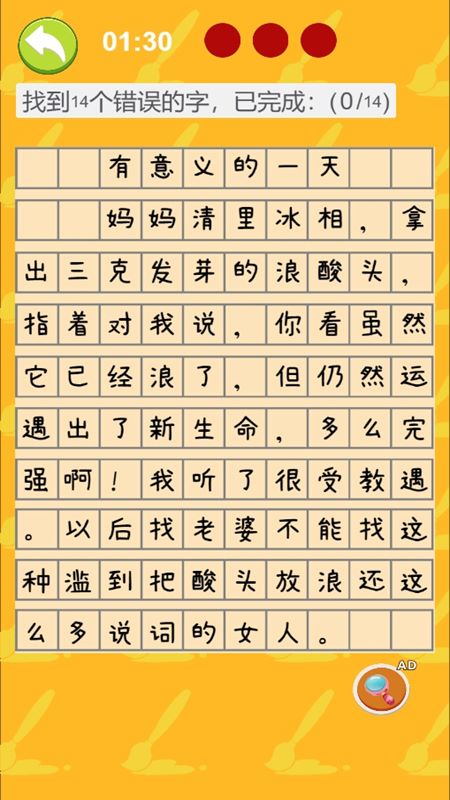 01:30
找到14个错误的字，已完成：(0/14)
有意义的一天
妈妈清里冰相，拿
出三克发芽的浪酸头，
指着对我说，你看虽然
它已经浪了，但仍然运
遇出了新生命，多么完
强啊！我听了很受教遇
。以后找老婆不能找这
种滥到把酸头放浪还这
么多说词的女人。
AD